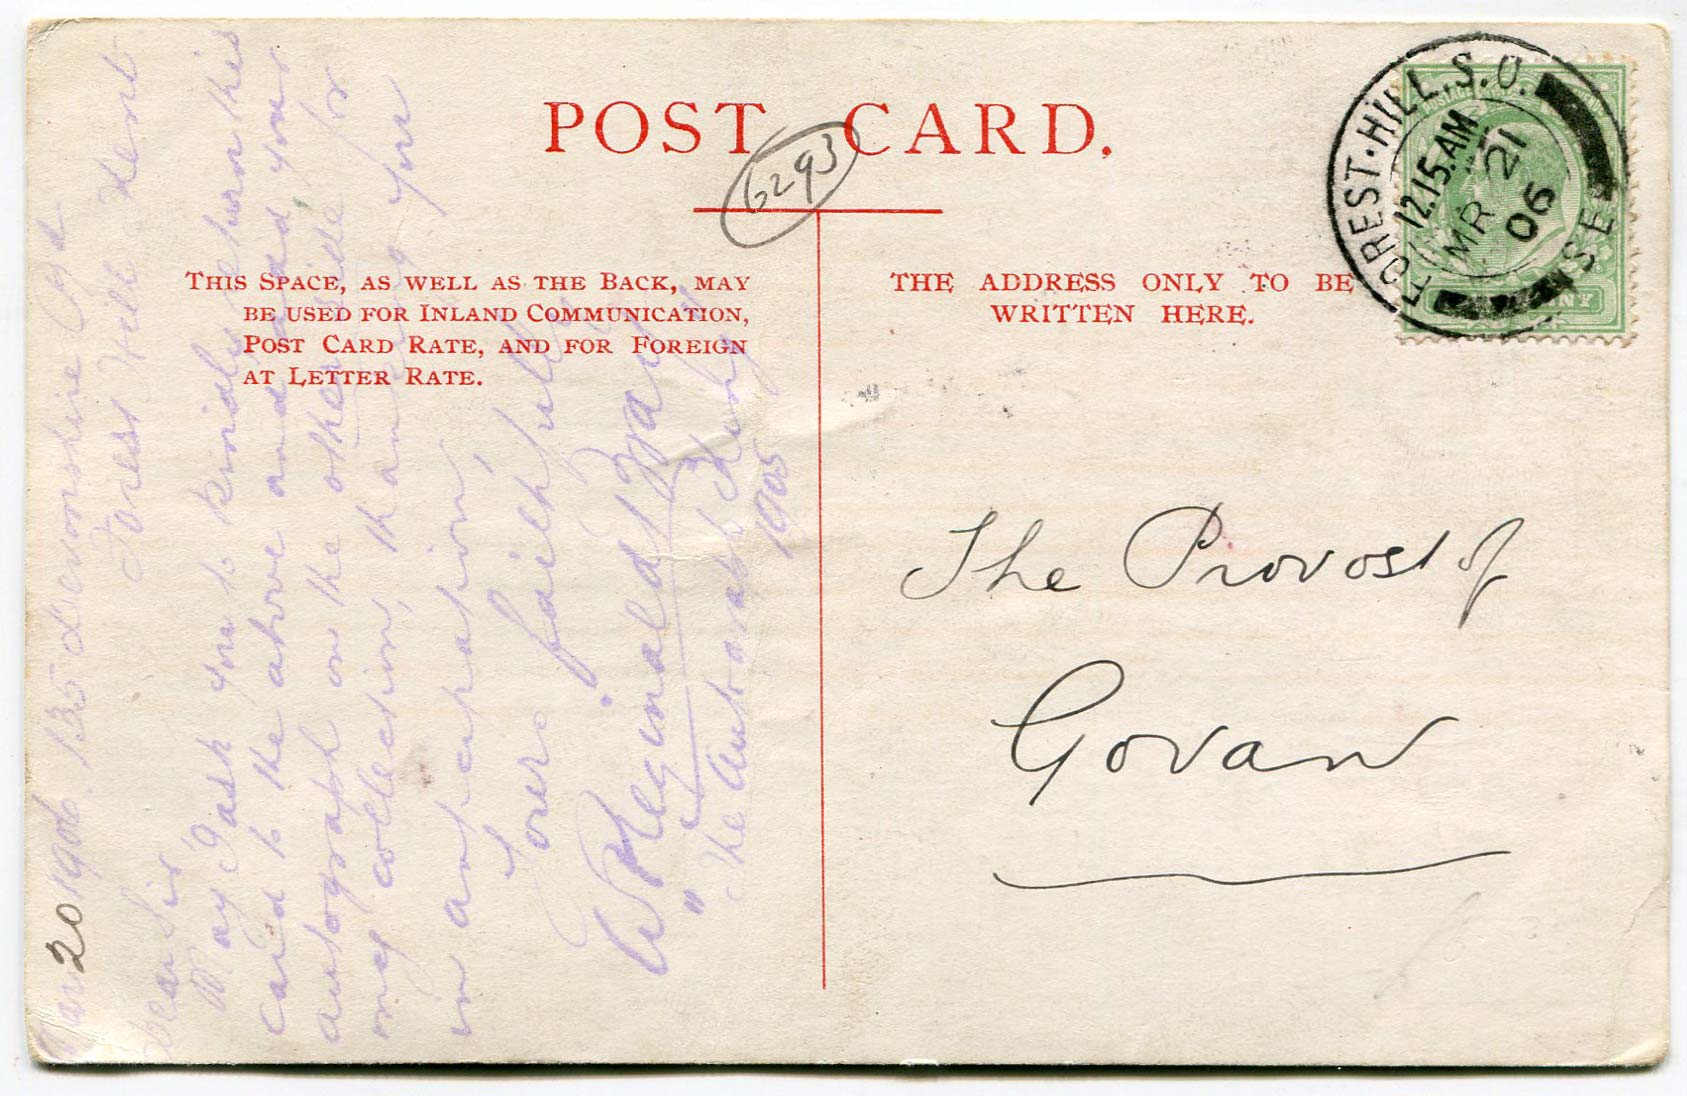 POST CARD.
6293
THIS SPACE, AS WELL AS THE BACK, MAY
BE USED FOR INLAND COMMUNICATION,
POST CARD RATE, AND FOR FOREIGN
AT LETTER RATE.
THE ADDRESS ONLY TO BE
WRITTEN HERE.
FOREST·HILL.S.O.
12.15.AM
MR 21
06
S.E
NY
The Provost of
Govan
20 1906. 135 Devonshire
Forest Hill Kent
Dear Sir
May I ask you to kindly return this
card to the above and add your
autograph on the other side for
my collection, thanking you
in anticipation,
Yours faithfully
W Reginald Bray
"The Autograph King"
1905